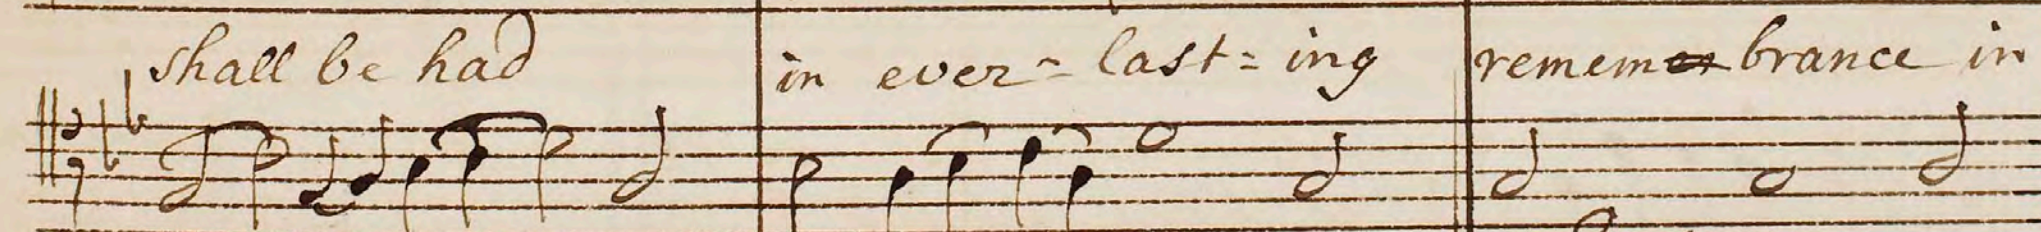 shall be had in ever - last = ing rememer brance in